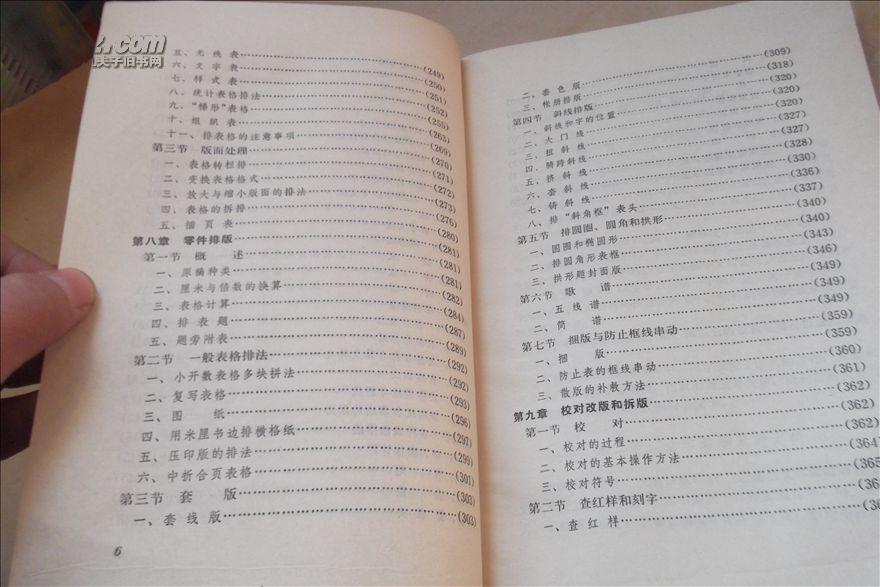 五、无线表……(249)
六、文字表……(250)
七、样式表……(251)
八、统计表格排法……(252)
九、“梯形”表格……(255)
十、组织表……(263)
十一、排表格的注意事项……(269)
第三节 版面处理……(270)
一、表格转栏排……(271)
二、变换表格格式……(272)
三、放大与缩小版面的排法……(273)
四、表格的拆排……(276)
五、插页表……(280)
第八章 零件排版……(281)
第一节 概 述……(281)
一、原稿种类……(281)
二、厘米与倍数的换算……(282)
三、表格计算……(284)
四、排表题……(287)
五、题旁附表……(289)
第二节 一般表格排法……(292)
一、小开数表格多块拼法……(292)
二、复写表格……(293)
三、图 纸……(296)
四、用米厘书边排横格纸……(297)
五、压印版的排法……(299)
六、中折合页表格……(301)
第三节 套 版……(303)
一、套线版……(303)
6
二、套色版……(309)
三、帐册排版……(318)
第四节 斜线排版……(320)
一、斜线和字的位置……(320)
二、大门线……(320)
三、扭斜线……(327)
四、骑跨斜线……(327)
五、挤斜线……(328)
六、套斜线……(330)
七、铸斜线……(336)
八、排“斜角框”表头……(337)
第五节 排圆圈、圆角和拱形……(340)
一、圆圈和椭圆形……(340)
二、排圆角形表框……(343)
三、拱形题封面版……(346)
第六节 歌 谱……(349)
一、五线谱……(349)
二、简 谱……(349)
第七节 捆版与防止框线串动……(359)
一、捆 版……(359)
二、防止表的框线串动……(360)
三、散版的补救方法……(361)
第九章 校对改版和拆版……(362)
第一节 校 对……(362)
一、校对的过程……(362)
二、校对的基本操作方法……(364
三、校对符号……(365
第二节 查红样和刻字……(36
一、查红样……(36